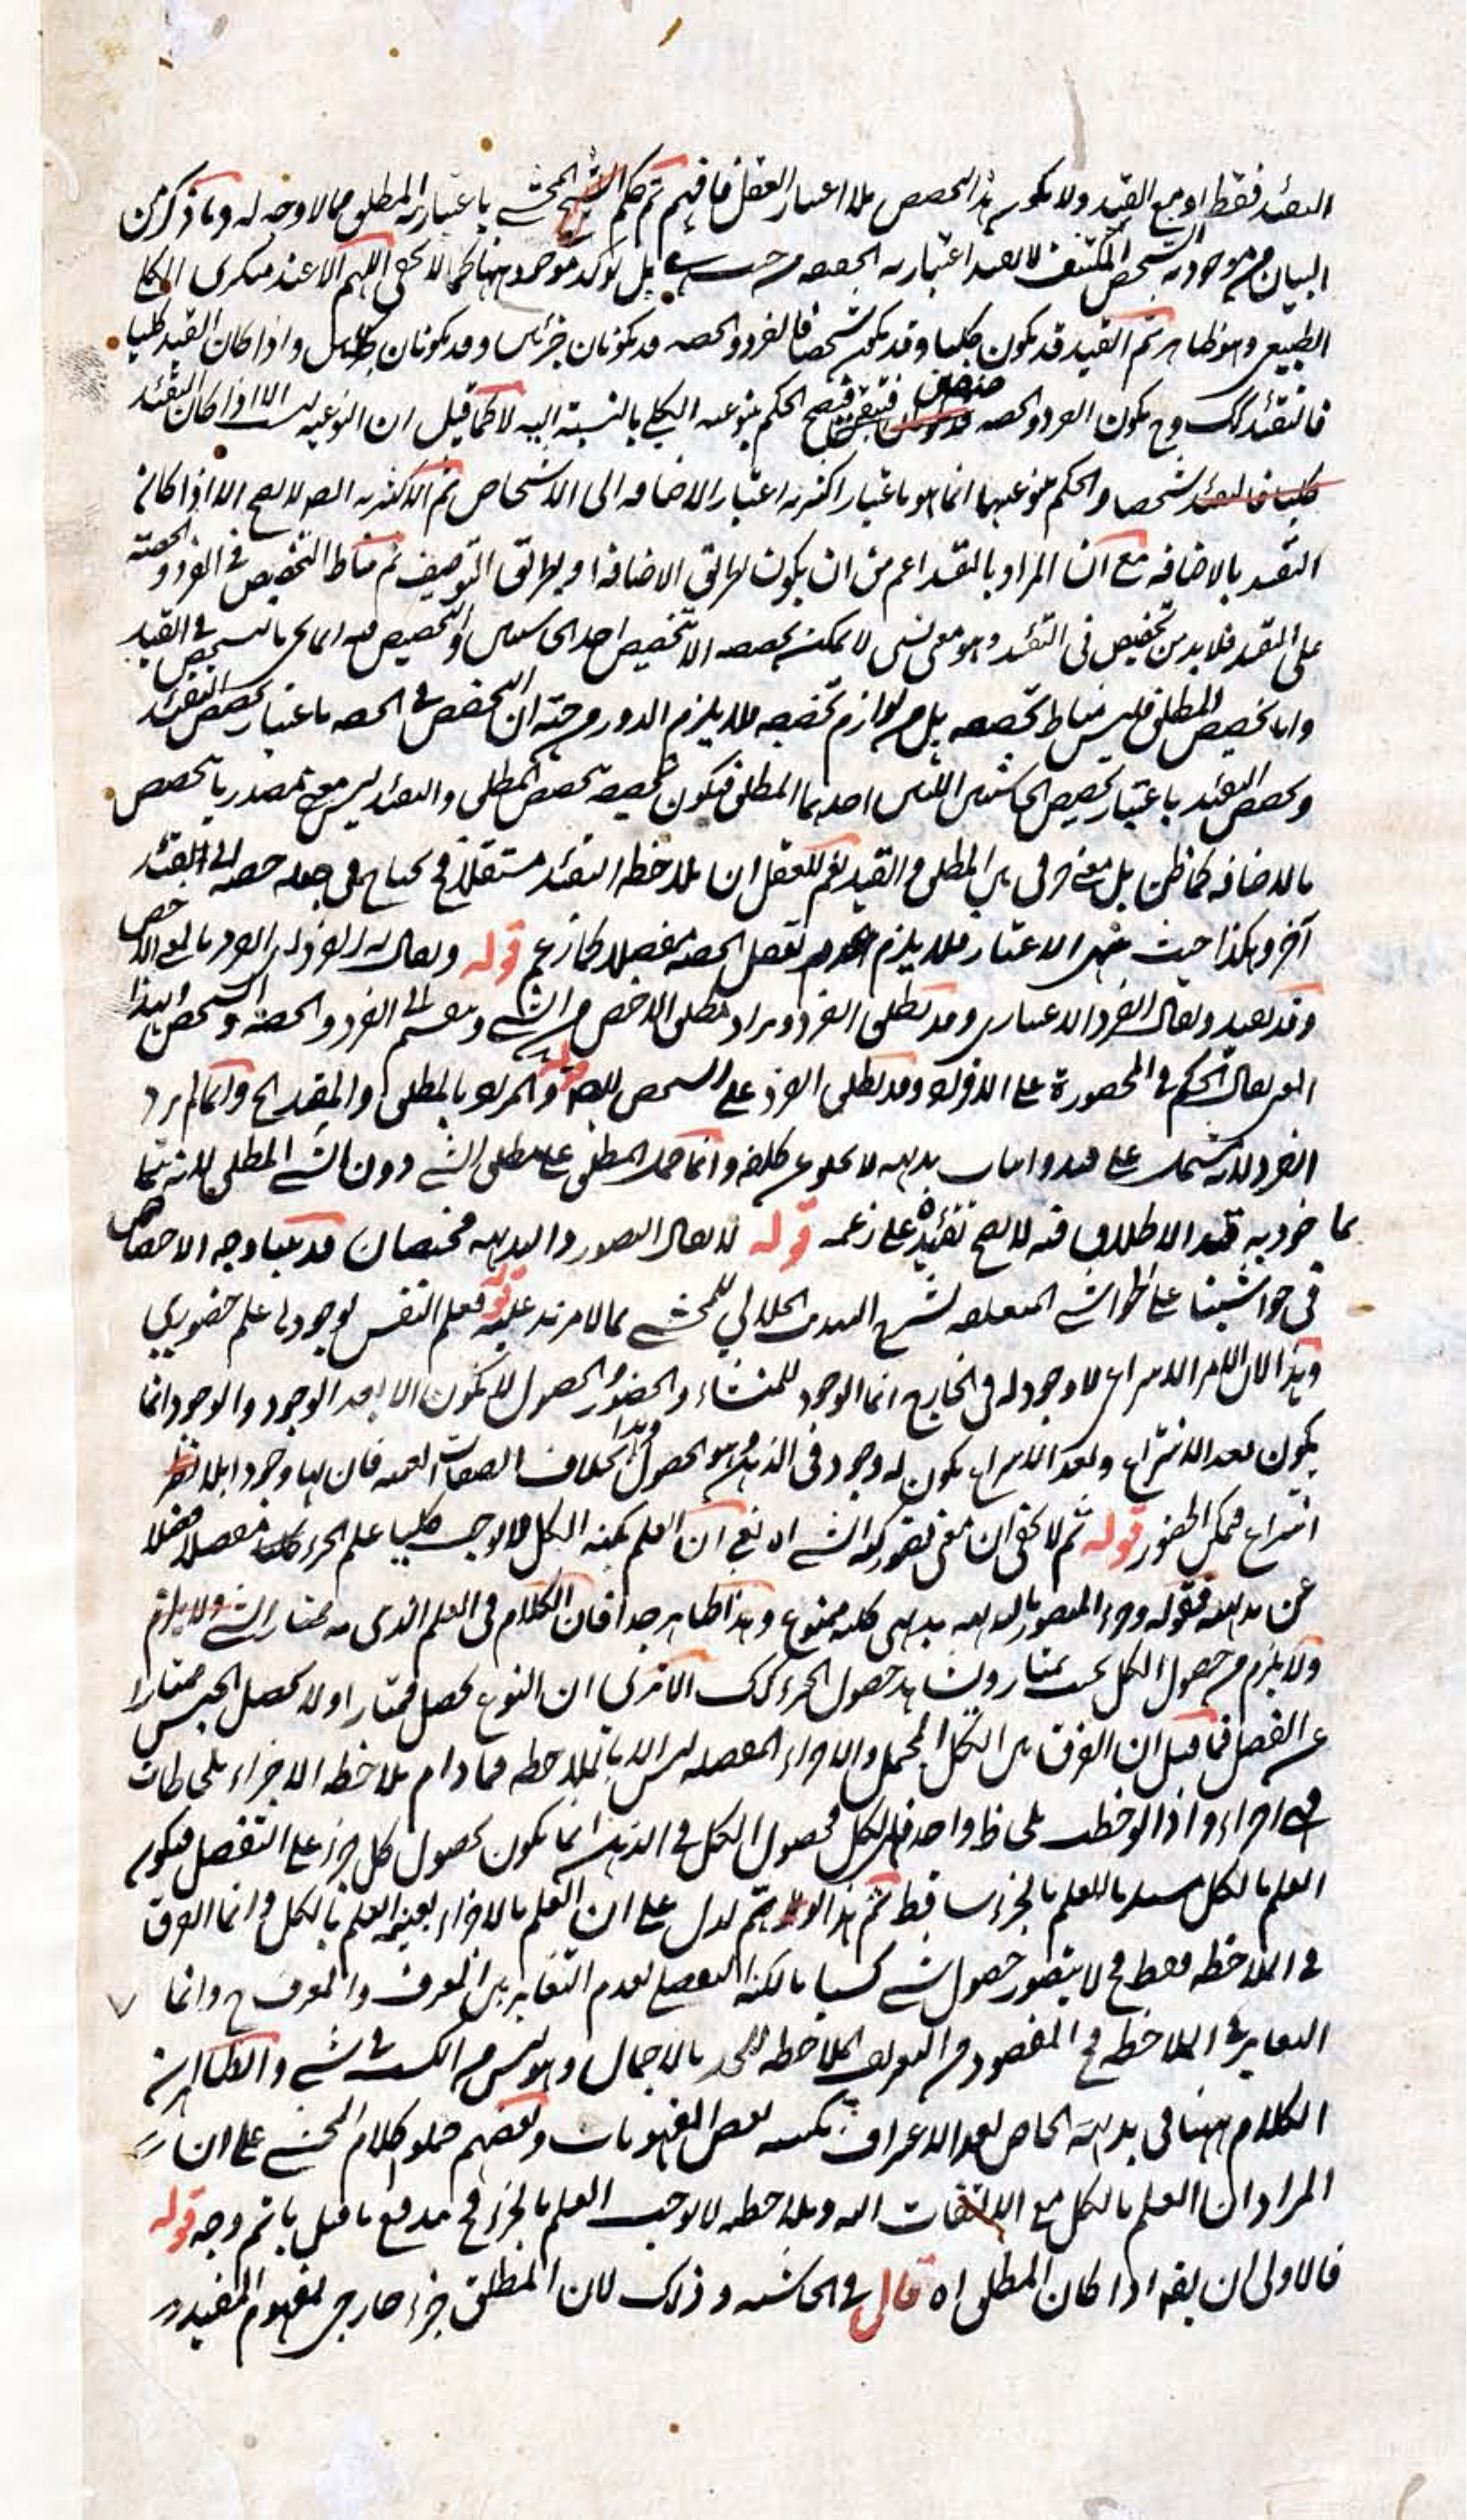 التقئيد فقط او مع القيد ولا يكون هذا التحصص بلا اعتبار العقل فافهم ثم حكم المحشى باعتبارية المطلق مما لا وجه له وما ذكر من
البيان من موجودية الشخص المكتنف لا يفيد اعتبارية الحصة من حيث هى بل يؤكد موجوديتها كما لا يخفى اللهم الا عند منكرى الكلى
الطبيعى وهو ظاهر ثم القيد قد يكون كليا وقد يكون شخصا فالفرد والحصة قد يكونان جزئيين وقد يكونان كليين واذا كان القيد كليا
فالتقئيد كك وح يكون الفرد والحصة فيصح الحكم بنوعية الكلى بالنسبة اليه لا كما قيل ان النوعية ليست الا اذا كان التقئيد
شخصا والحكم بنوعيتها انما هو باعتبار اكثرية اعتبار الاضافة الى الاشخاص ثم الاكثرية ايضا لا يصح الا اذا كان
التقييد بالاضافة مع ان المراد بالتقييد اعم من ان يكون بطريق الاضافة او بطريق التوصيف ثم مناط التخصيص فى الفرد والحصة
على التقييد فلا بد من تخصيص فى التقئيد وهو معنى نسبى لا يمكن تخصصه الا بتخصيص احد الحاشيتين والتخصيص فيه انما هى بالتخصص فى القيد
واما تخصيص المطلق فليس مناط تخصصه بل من لوازم تخصصه فلا يلزم الدور من جهة ان التخصص فى الحصة باعتبار تخصص التقئيد
وتخصص التقئيد باعتبار تخصيص الحاشيتين اللتين احدهما المطلق فيكون تخصيصه بتخصص المطلق والتقئيد ليس معنى مصدريا يتخصص
بالاضافة كما ظن بل معنى حرفى بين المطلق والقيد نعم للعقل ان يلاحظ التقئيد مستقلا فح يحتاج فى جعله حصة الى التقئيد
آخر وهكذا حيث ينتهى الاعتبار فلا يلزم تعقل الحصة مفصلا كما زعم قوله ويقال له الفرد اى الفرد بالمعنى الاخص
وقد يقيد ويقال الفرد الاعتبارى وقد يطلق الفرد ويراد مطلق الاخص من الشئ وينقسم الى الفرد والحصة والشخص وبهذا
المعنى يقال الحكم فى المحصورة على الافراد وقد يطلق الفرد على الشخص قوله والمراد بالمطلق والمقيد الخ وانما لم يرد
الفرد لانه يشتمل على قيد واثبات بداهته لا يخلو عن كلفة وانما حمل المطلق على مطلق الشئ دون الشئ المطلق لانه
ماخوذ به قيد الاطلاق فيه لا يصح تقئيده على زعمه قوله لا يقال التصور والبديهة مختصان قد بينا وجه الاختصاص
فى حواشينا على الحواشى المتعلقة لشرح التهذيب الجلالى للمحشى بما لا مزيد عليه قوله فعلم النفس بوجودها علم حضورى
وهذا لان الامر الانتزاعى لا وجود له فى الخارج انما الوجود للمنشاء والحضور والحصول لا يكون الا بعد الوجود والوجود انما
يكون بعد الانتزاع وبعد الانتزاع يكون له وجود فى الذهن وهو الحصول وهذا بخلاف الصفات العينية فان لها وجودا بلا
انتزاع فيمكن الحضور قوله ثم لا يخفى ان معنى تصور كنه الشئ اه يعنى ان العلم بكنه الكل لا يوجب علم الجزء مفصلا فضلا
عن بداهته فقوله وجزء المتصور بالبداهة بديهى كلية ممنوع وهذا ظاهر جدا فان الكلام فى العلم الذى به يمتاز الشئ
ولا يلزم من حصول الكل بحيث يمتاز ويشاهد حصول الجزء كك الا ترى ان النوع يحصل ممتازا ولا يحصل الجنس ممتازا
عن الفصل فما قيل ان الفرق بين الكل المجمل والاجزاء المفصلة ليس الا بالملاحظة فما دام يلاحظ الاجزاء بلحاظات
فهى اجزاء واذا لوحظت بلحاظ واحد فهى الكل فحصول الكل فى الذهن انما يكون بحصول كل جزء على التفصيل فيكون
العلم بالكل مستلزما للعلم بالجزء ساقط ثم هذا لو تم لدل على ان العلم بالاجزاء بعينه العلم بالكل وانما الفرق
فى الملاحظة فقط فح لا يتصور حصول شئ كسبا بالكنه التفصيلى لعدم التغاير بين المعرف والمعرف ح وانما
التغاير فى الملاحظة فح المقصود من التعريف الملاحظة بالاجمال وهو ليس من الكسب فى شئ والظاهر ان
الكلام ههنا فى بداهة الخاص بعد الاعتراف بكسبية بعض المفهومات وبعضهم حملوا كلام المحشى على ان
المراد ان العلم بالكل مع الالتفات اليه وملاحظته لا يوجب العلم بالجزء فح يندفع ما قيل باتم وجه قوله
فالاولى ان يقه اذا كان المطلق اه قال فى الحاشية وذلك لان المطلق جزء خارجى لمفهوم المقيد